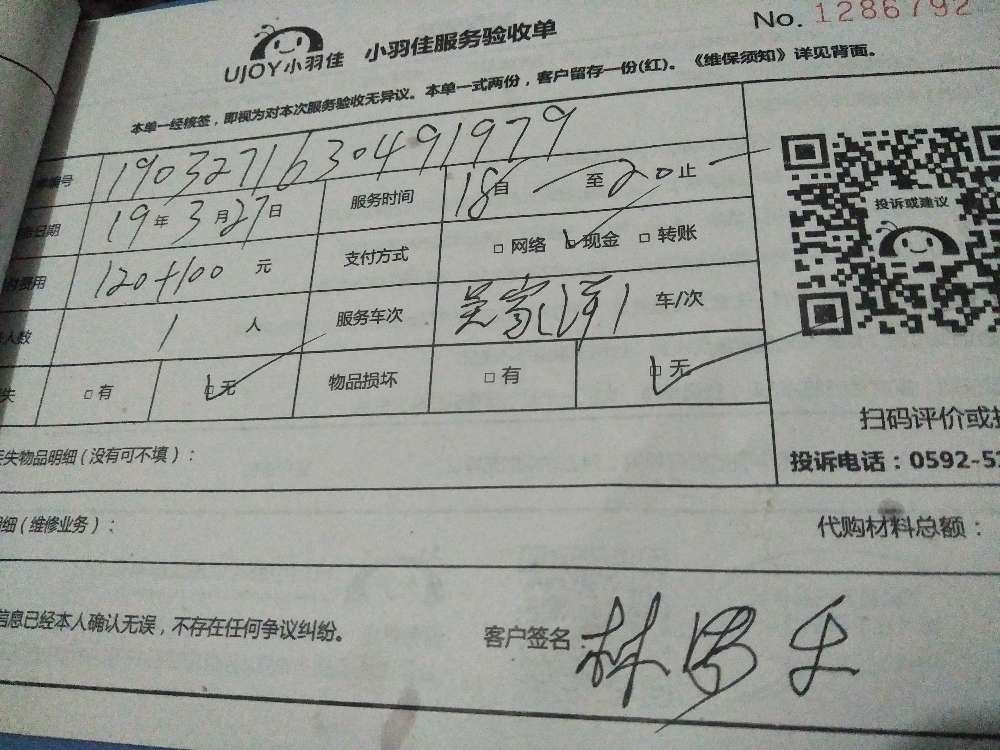 No. 1286792
UJOY小羽佳 小羽佳服务验收单
本单一经核签，即视为对本次服务验收无异议。本单一式两份，客户留存一份(红)。《维保须知》详见背面。
编号 190327163049１979
日期 19年3月27日 服务时间 18自 至20止
投诉或建议
费用 120+100 元 支付方式 □网络 ☑现金 □转账
人数 1 人 服务车次 吴家 1 车/次
失 □有 ☑无 物品损坏 □有 ☑无
扫码评价或
失物品明细（没有可不填）：
投诉电话：0592-5
细（维修业务）： 代购材料总额：
信息已经本人确认无误，不存在任何争议纠纷。 客户签名：林